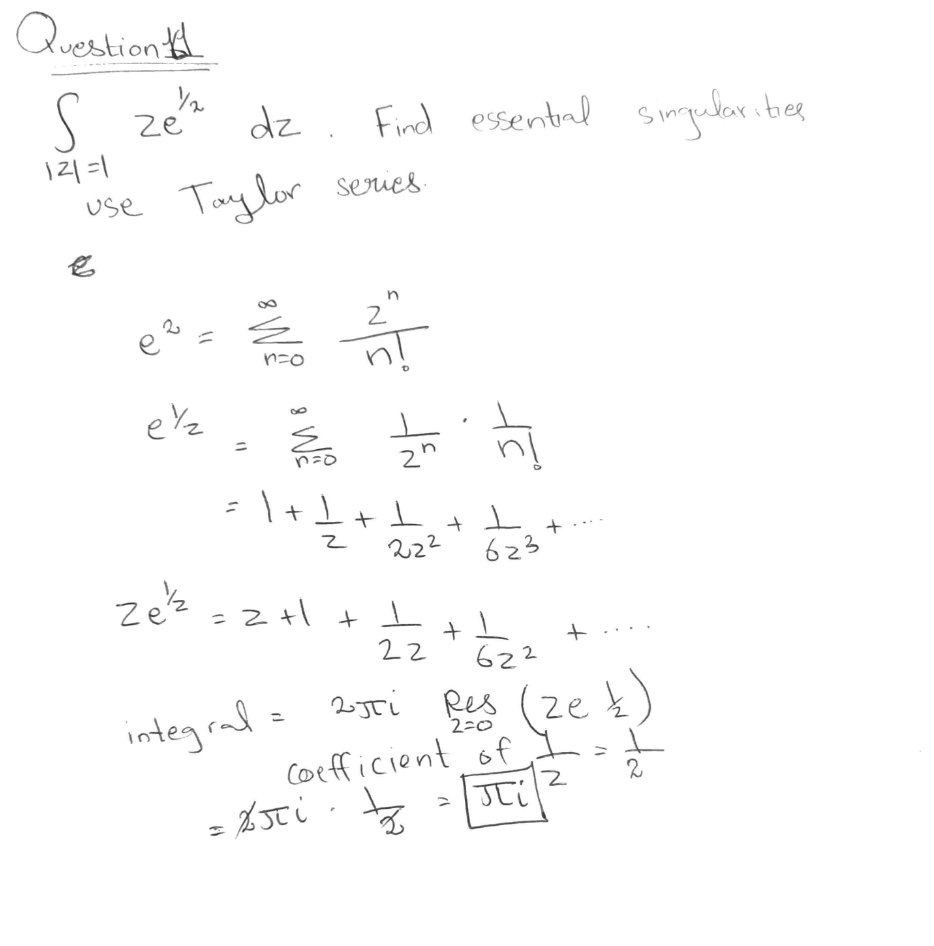 Question 11
∫ ze^(1/z) dz . Find essential singularities
|z|=1
use Taylor series.
e^z = ∞ Σ n=0 z^n / n!
e^(1/z) = ∞ Σ n=0 1/z^n · 1/n!
= 1 + 1/z + 1/2z² + 1/6z³ + ....
Ze^(1/z) = z + 1 + 1/2z + 1/6z² + ....
integral = 2πi Res z=0 (ze^(1/z))
coefficient of 1/z = 1/2
= 2πi · 1/2 = πi